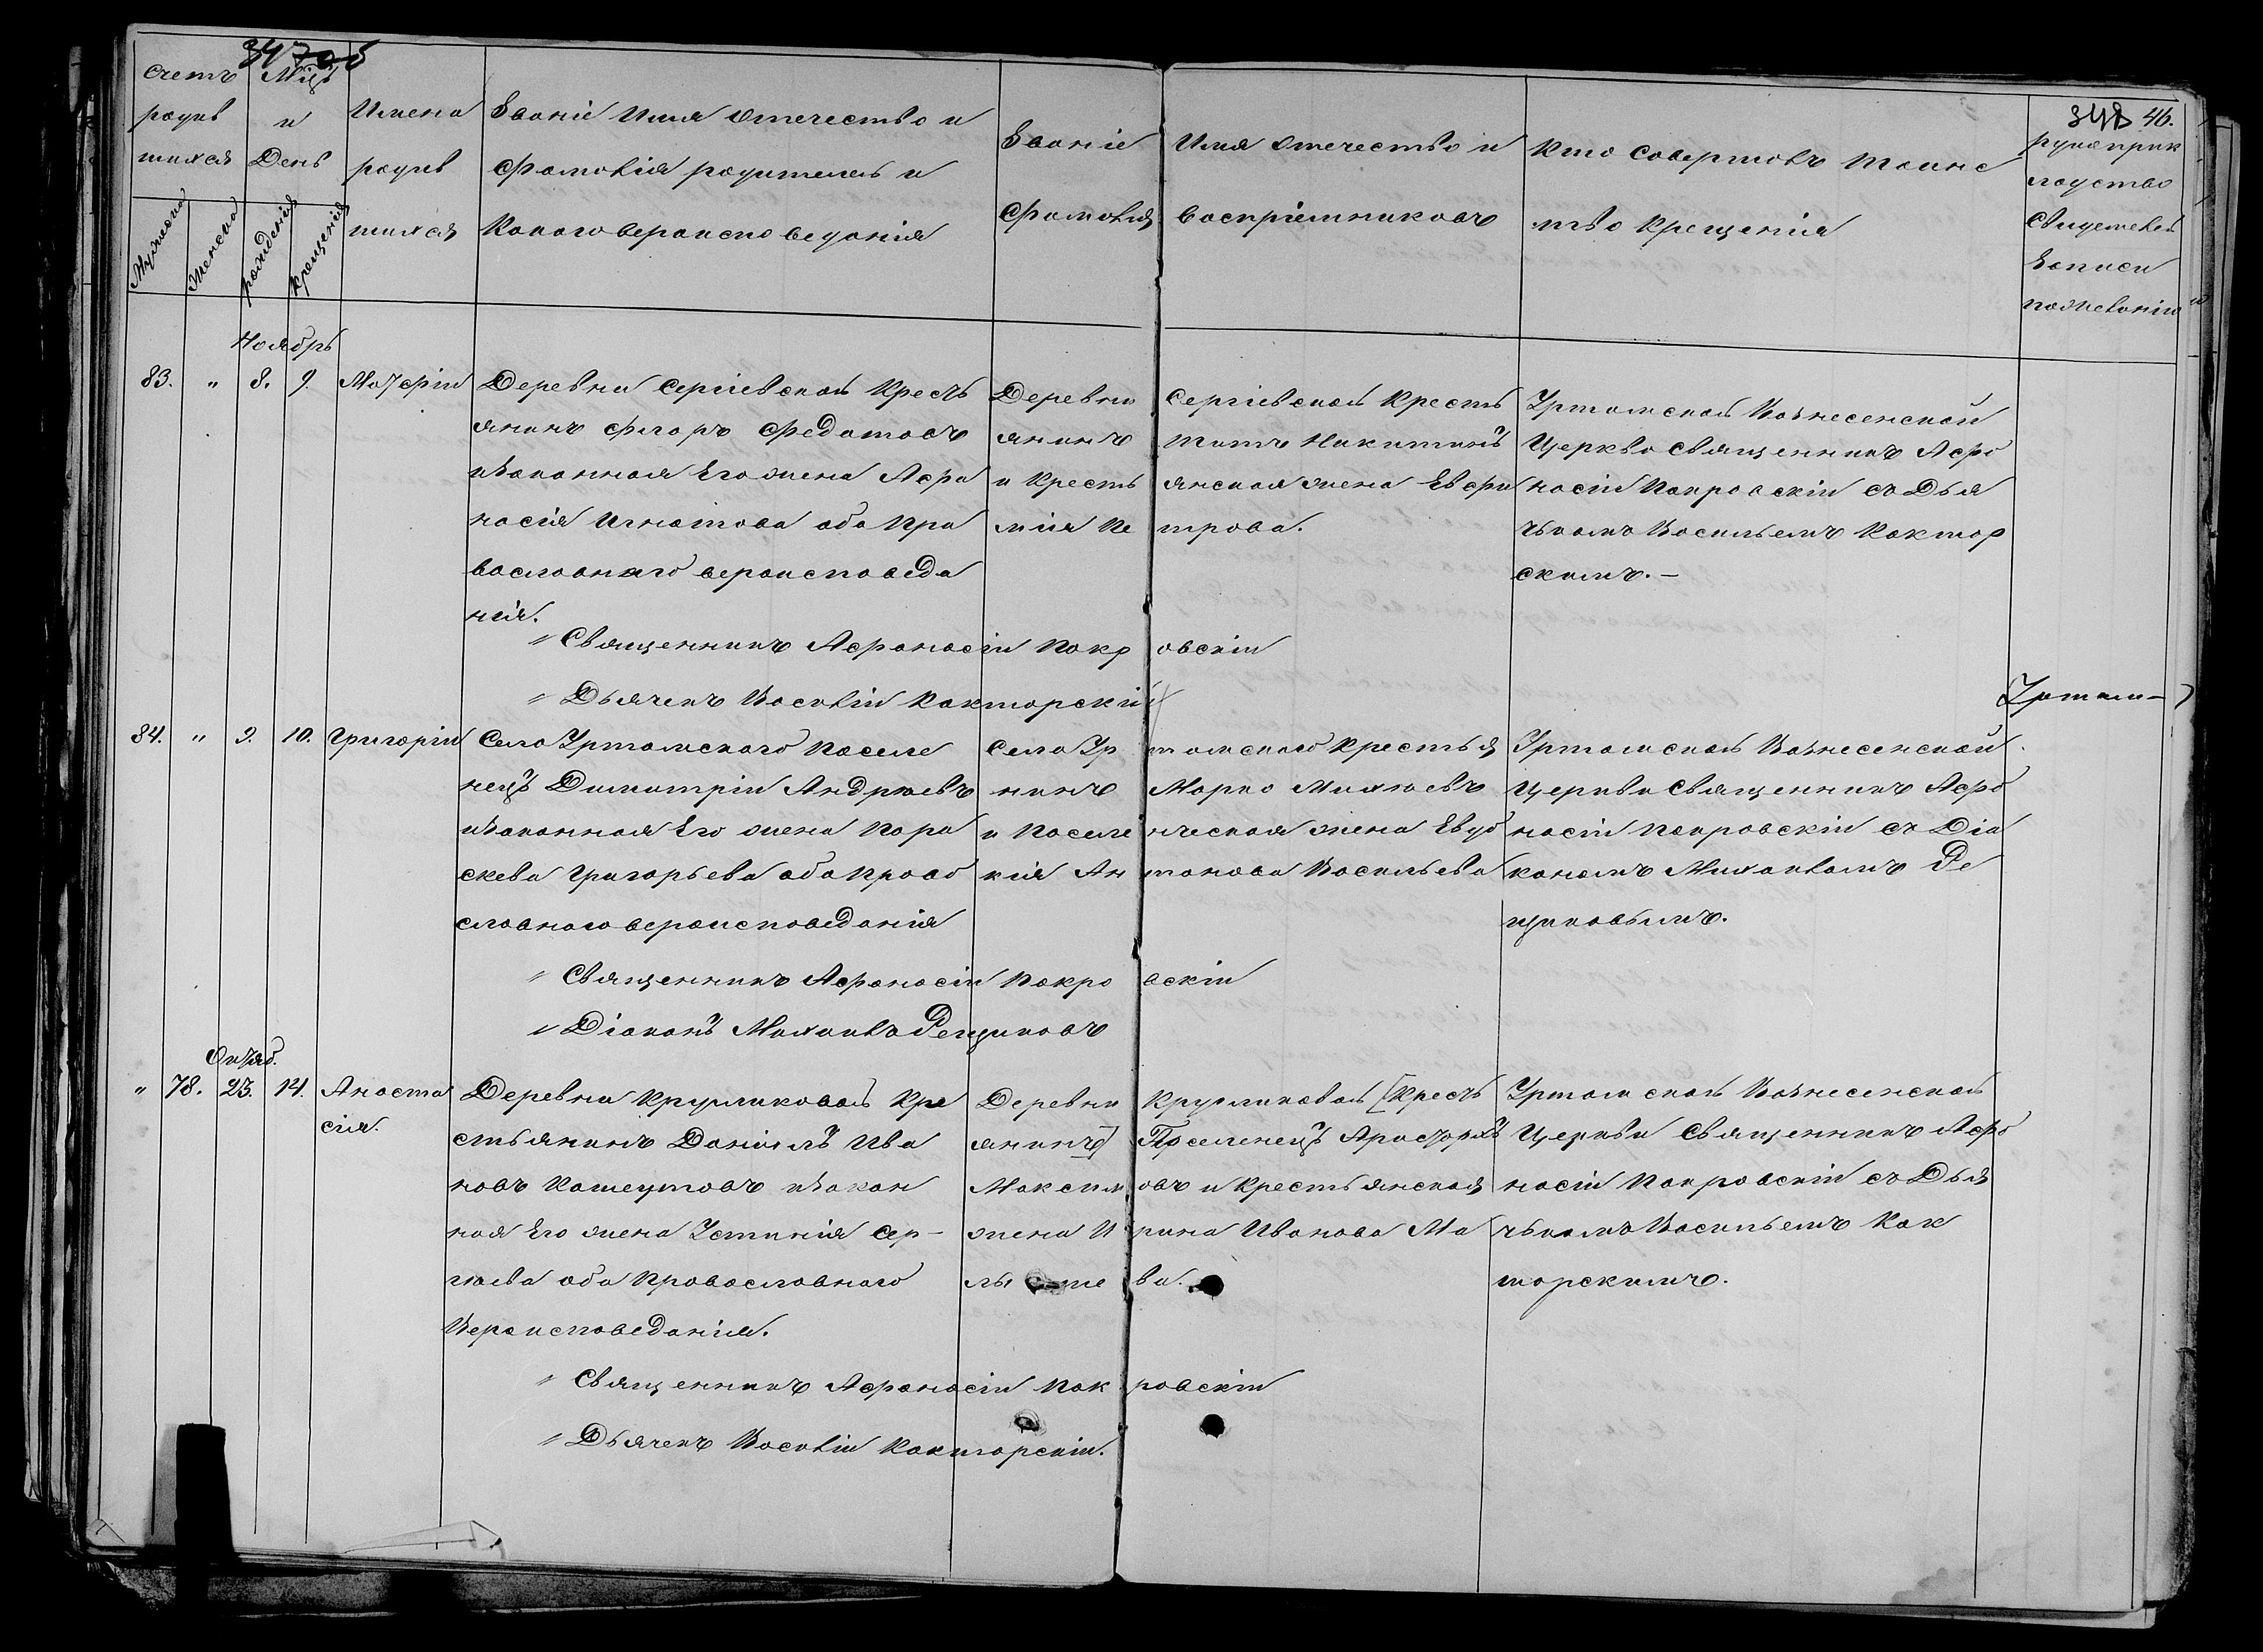 347об
348 46.
Счетъ
родив
шихся
Мужеска
Женска
Мцъ
и
День
рожденія
крещенія
Имена
родив
шихся
Званіе Имя Отечество и
Фамилія родителей и
Какого вероисповеданія
Званіе
Фамилія
Имя Отечество и
воспріемниковъ
Кто совершовъ Таинс
тво крещенія
рукоприк
ладство
Свидетелей
Записи
пожеванію
Ноябрь
83. " 8. 9. Матфій
Деревни Сергіевской Кресть
янинъ Флоръ Федотовъ
и Законная Его жена Афа
насія Игнатова оба Пра
вославнаго вероисповеда
нія.
Деревни Сергіевской Кресть
янинъ Титъ Никитинъ
и Кресть янская жена Евфи
мія Пе трова.
Уртамской Вознесенской
Церкви Священникъ Афо
насій Покровскій съ Дья
чькомъ Васильемъ Кактор
скимъ.—
" Священникъ Афонасій Покр овскій
" Дьячекъ Василій Какторскій
Уртам—
84. " 9. 10. Григорій
Село Уртамского Поселе
нецъ Димитрій Андреевъ
и Законная Его жена Пара
скева Григорьева оба Право
славного вероисповеданія
Села Ур тамского Крестья
нинъ Марко Михеевъ
и Поселе нческая жена Евдо
кія Ан тонова Васильева
Уртамской Вознесенской
Церкви Священникъ Афо
насій Покровскій съ Діа
кономъ Михаиломъ Ре
щиковымъ.
" Священникъ Афонасій Покро вскій
" Діаконъ Михаилъ Рещиковъ
Октяб.
" 78. 23. 14. Анаста
сія.
Деревни Кругликовой Кре
стьянинъ Даніилъ Ива
новъ Кашеутовъ и Закон
ная Его жена Устинія Сер—
гѣева оба Православнаго
Вероисповеданія.
Деревни Кругликовой [Кресть
янинъ] Поселенецъ Аристархъ
Максим овъ и Крестьянская
жена И рина Иванова Ма
лы ше ва.
Уртамской Вознесенской
Церкви Священникъ Афо
насій Покровскій съ Дья
чькомъ Васильемъ Как
торскимъ.
" Священникъ Афонасій Пок ровскій
" Дьячекъ Василій Какторскій.